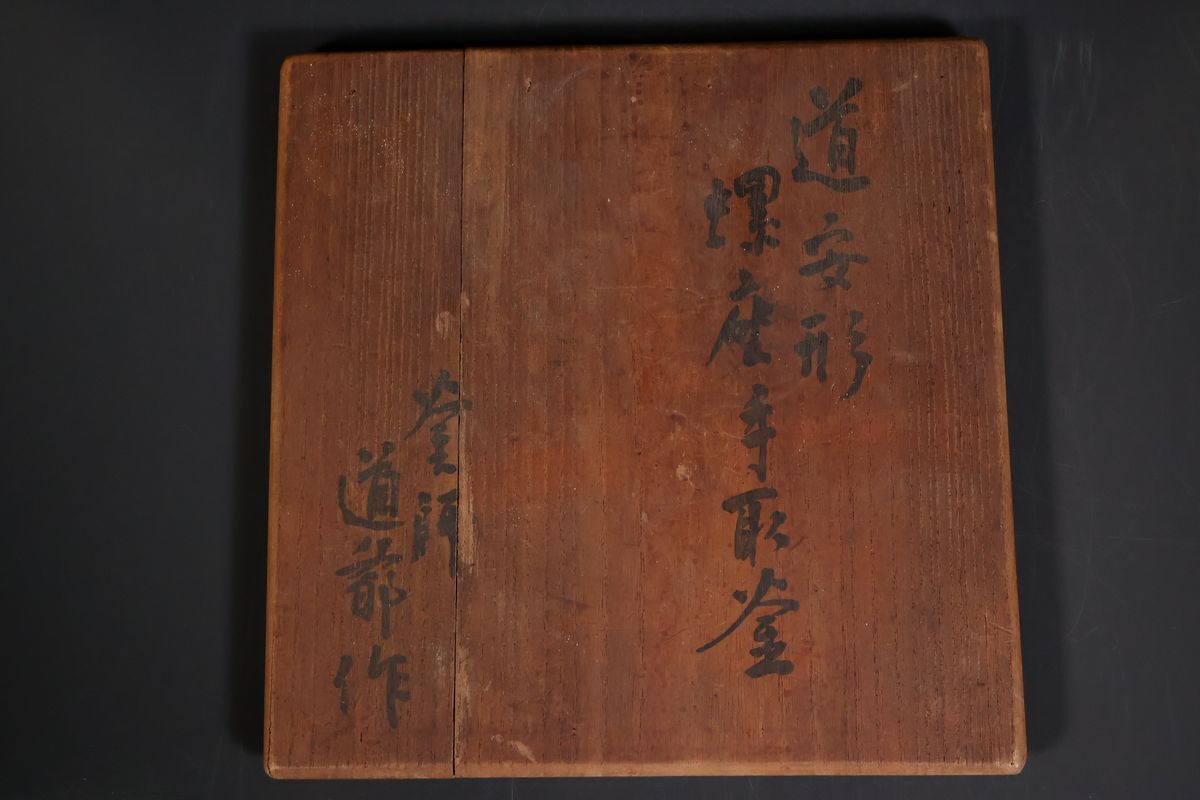 道安形
螺座手取釜
釜師
道爺作